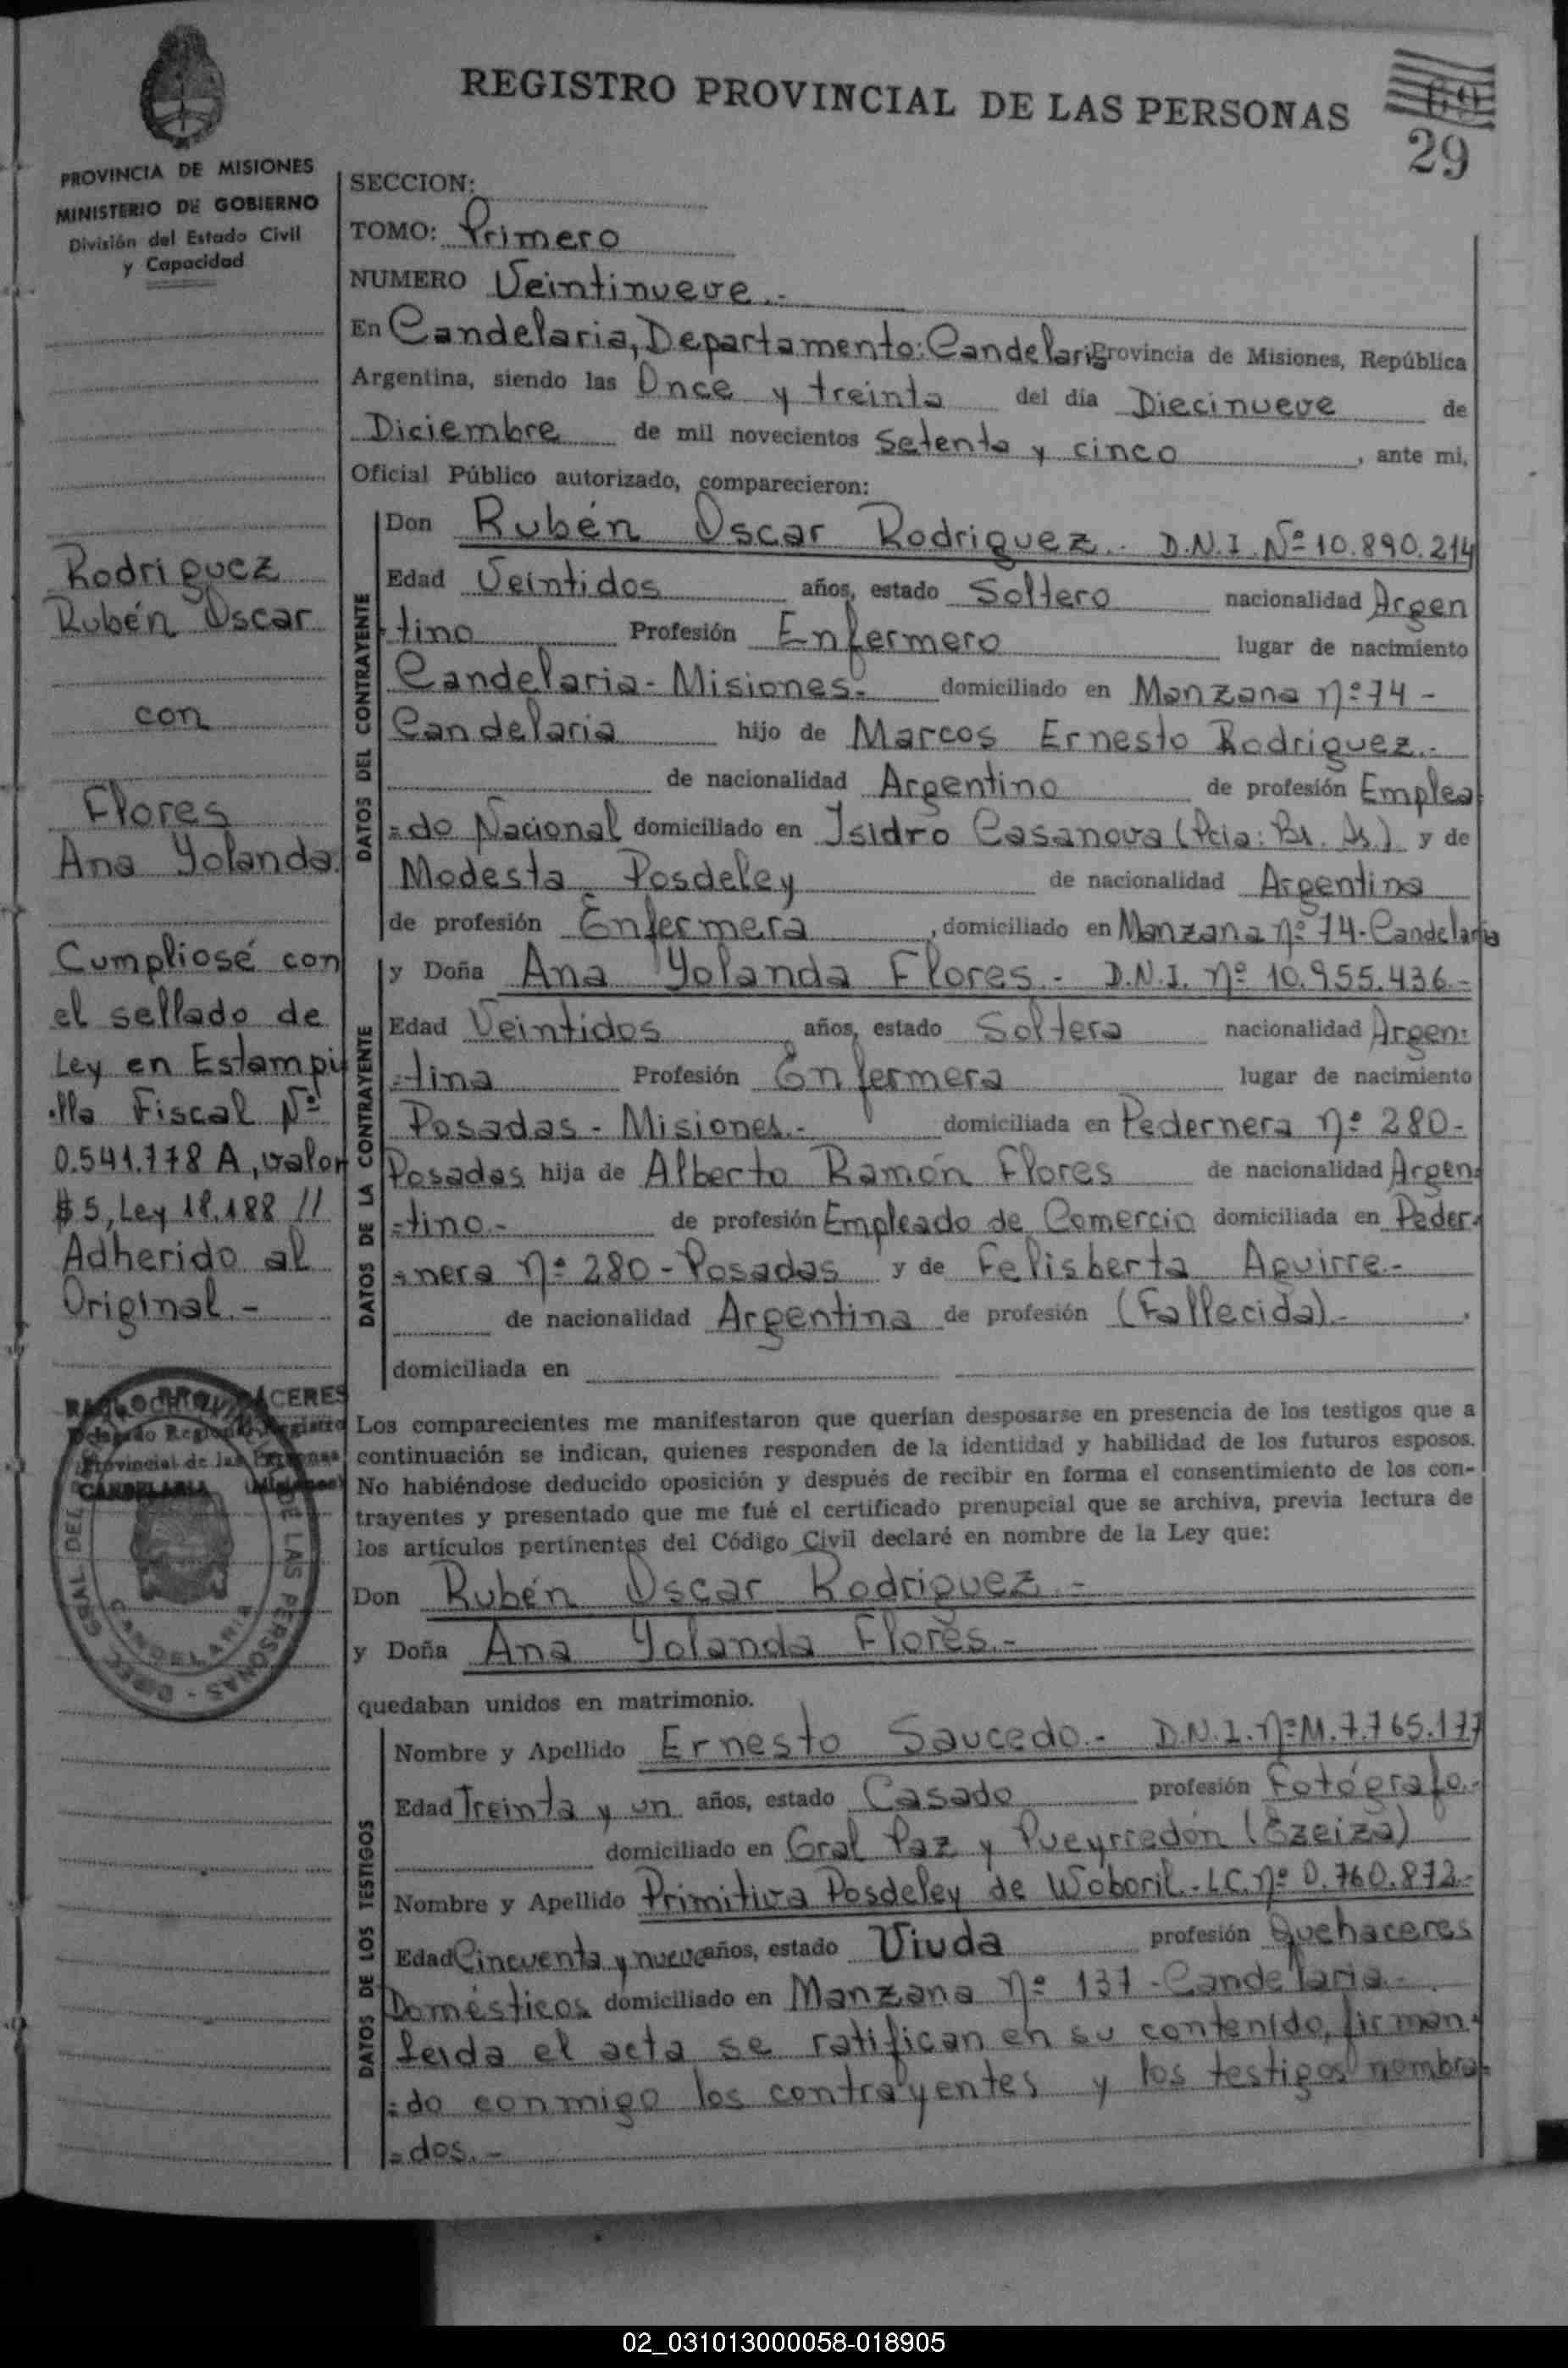 REGISTRO PROVINCIAL DE LAS PERSONAS
29
PROVINCIA DE MISIONES
MINISTERIO DE GOBIERNO
División del Estado Civil
y Capacidad
Rodriguez
Rubén Oscar
con
Flores
Ana Yolanda.
Cumpliosé con
el sellado de
Ley en Estampi
.lla Fiscal Nº
0.541.778 A, valor
$ 5, Ley 18.188 //
Adherido al
Original.-
SECCION:
TOMO: Primero
NUMERO Veintinueve.-
En Candelaria, Departamento: Candelaria Provincia de Misiones, República
Argentina, siendo las Once y treinta del día Diecinueve de
Diciembre de mil novecientos Setenta y cinco, ante mi,
Oficial Público autorizado, comparecieron:
DATOS DEL CONTRAYENTE
Don Rubén Oscar Rodriguez.- D.N.I. Nº 10.890.214
Edad Veintidos años, estado Soltero nacionalidad Argen
tino Profesión Enfermero lugar de nacimiento
Candelaria - Misiones.- domiciliado en Manzana nº 74 -
Candelaria hijo de Marcos Ernesto Rodriguez.-
de nacionalidad Argentino de profesión Emplea
=do Nacional domiciliado en Isidro Casanova (Pcia: Bs. As.) y de
Modesta Posdeley de nacionalidad Argentina
de profesión Enfermera, domiciliado en Manzana nº 74-Candelaria
DATOS DE LA CONTRAYENTE
y Doña Ana Yolanda Flores.- D.N.I. nº 10.955.436.-
Edad Veintidos años, estado Soltera nacionalidad Argen=
=tina Profesión Enfermera lugar de nacimiento
Posadas - Misiones.- domiciliada en Pedernera nº 280-
Posadas hija de Alberto Ramón Flores de nacionalidad Argen=
=tino.- de profesión Empleado de Comercio domiciliada en Peder=
=nera nº 280 - Posadas y de Felisberta Aguirre.-
de nacionalidad Argentina de profesión (Fallecida).-
domiciliada en
Los comparecientes me manifestaron que querían desposarse en presencia de los testigos que a
continuación se indican, quienes responden de la identidad y habilidad de los futuros esposos.
No habiéndose deducido oposición y después de recibir en forma el consentimiento de los con-
trayentes y presentado que me fué el certificado prenupcial que se archiva, previa lectura de
los artículos pertinentes del Código Civil declaré en nombre de la Ley que:
Don Rubén Oscar Rodriguez -
y Doña Ana Yolanda Flores.-
quedaban unidos en matrimonio.
DATOS DE LOS TESTIGOS
Nombre y Apellido Ernesto Saucedo.- D.N.I. nº M. 7.765.177
Edad Treinta y un años, estado Casado profesión Fotógrafo.-
domiciliado en Gral Paz y Pueyrredón (Ezeiza)
Nombre y Apellido Primitiva Posdeley de Woboril.- L.C. nº 0.760.872.-
Edad Cincuenta y nueve años, estado Viuda profesión Quehaceres
Domésticos domiciliado en Manzana nº 137 - Candelaria.-
Leida el acta se ratifican en su contenido, firman=
=do conmigo los contrayentes y los testigos nombra=
=dos.-
CERES
Delegado Regional Registro
Provincial de las Personas
CANDELARIA (Misiones)
DIREC. GRAL. DEL
DE LAS PERSONAS
CANDELARIA
02_031013000058-018905